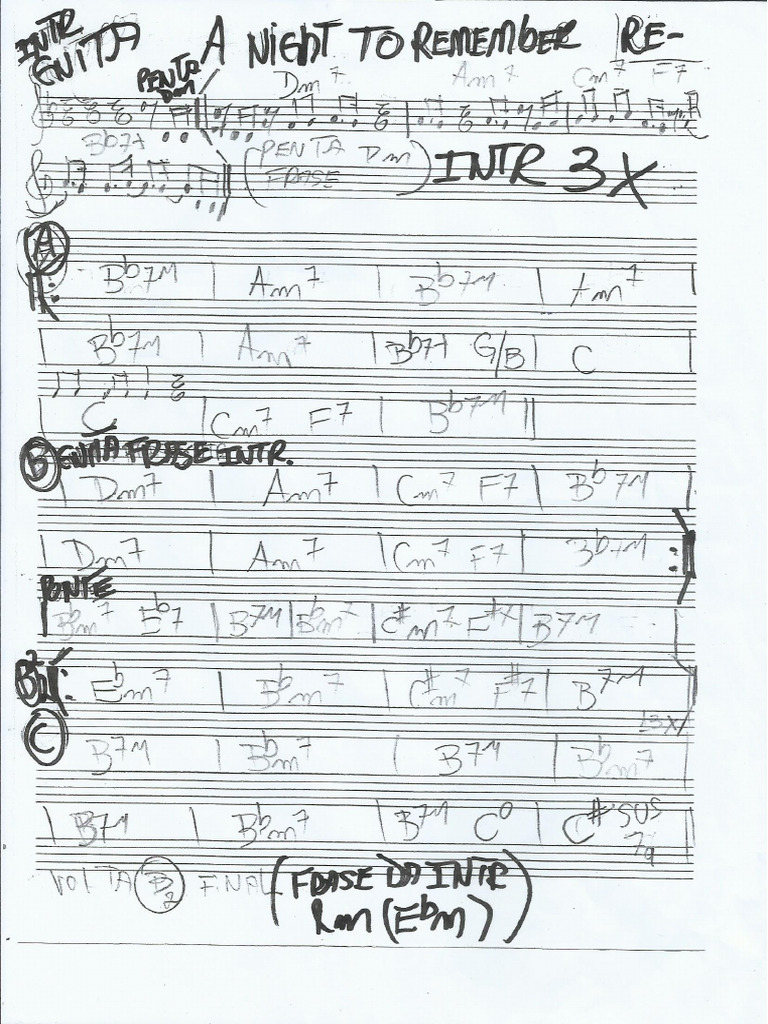 INTR A NIGHT TO REMEMBER RE-
GUITA
PENTA Dm7 Am7 Cm7 F7
Dm
Bb7+ (PENTA Dm) INTR 3X
FRASE
A
Bb7M | Am7 | Bb7M | Am7
Bb7M | Am7 | Bb7+ G/B | C
C | Cm7 F7 | Bb7M ||
B GUITA FRASE INTR.
| Dm7 | Am7 | Cm7 F7 | Bb7M |
| Dm7 | Am7 | Cm7 F7 | Bb7M :|
PNTE
Bbm7 Eb7 | B7M | Bbm7 | C#m7 | B7M
B2 |: Ebm7 | Bbm7 | C#m7 F#7 | B7M
3X
C
B7M | Bbm7 | B7M | Bbm7
| B7M | Bbm7 | B7M C° | C# SUS
7 9
VOLTA B2 FINAL (FRASE DA INTR
Rm (Ebm))